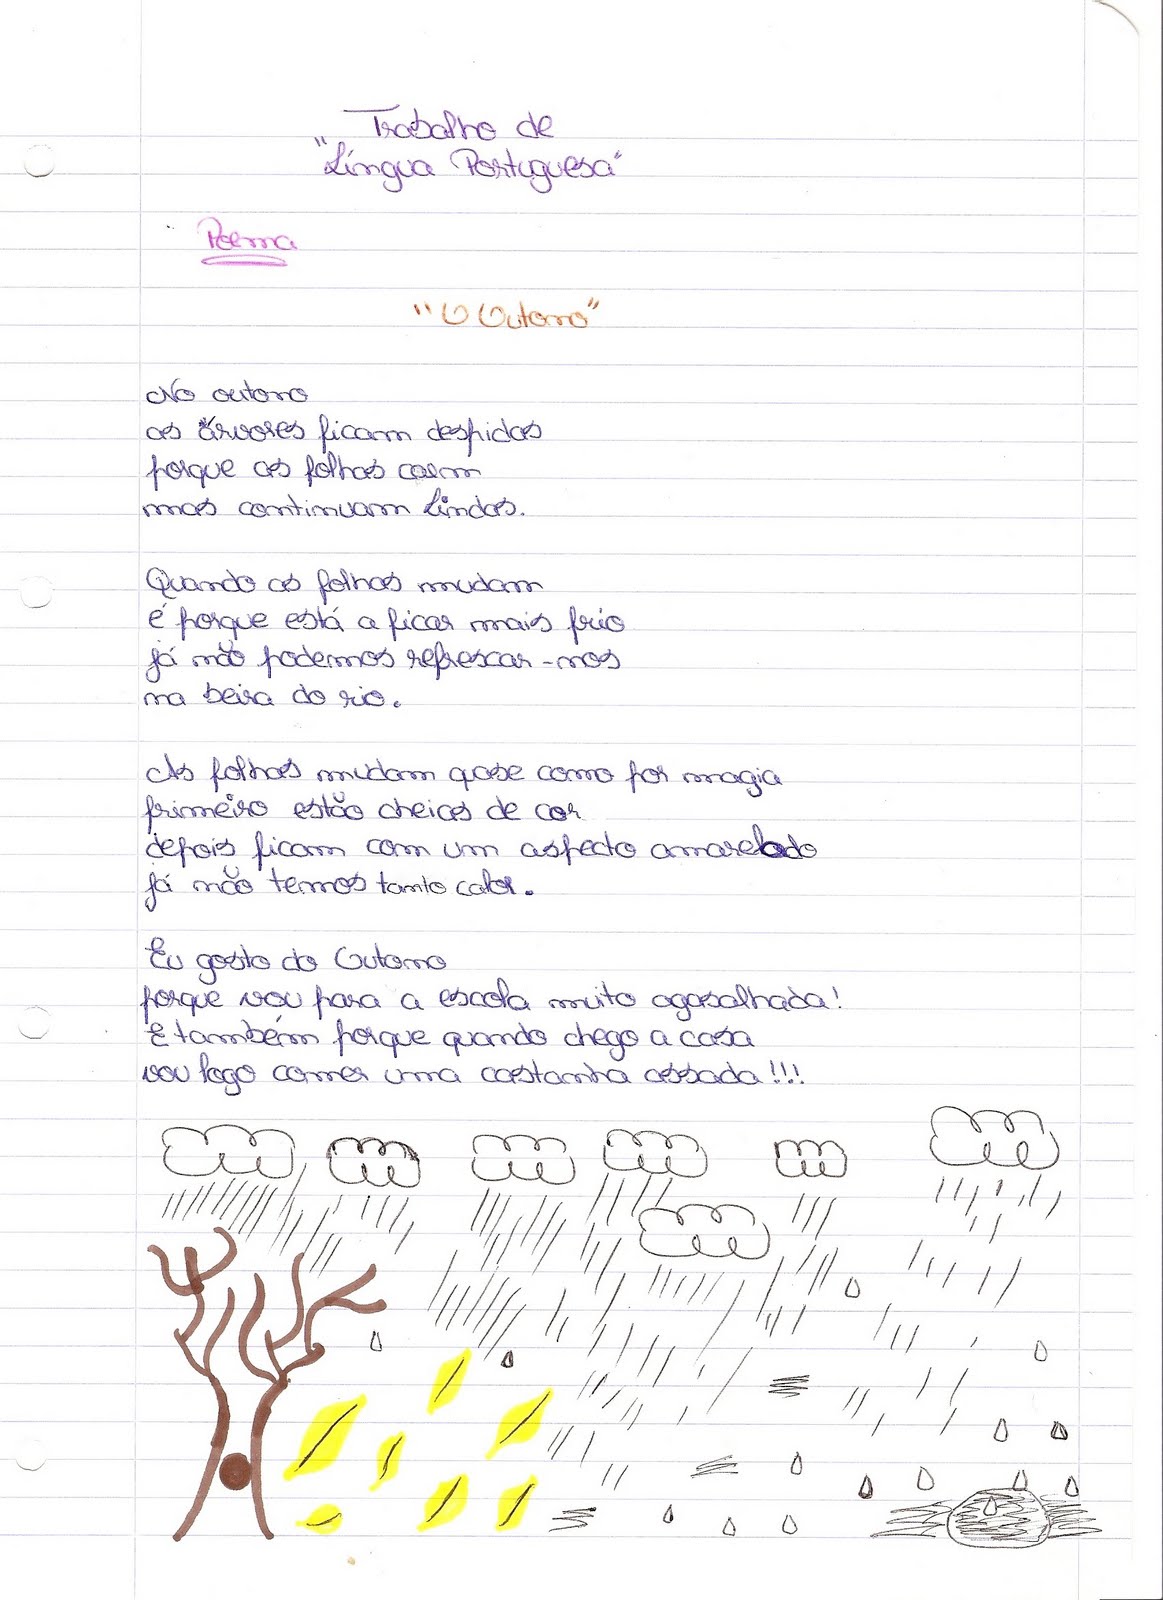 Trabalho de
"Língua Portuguesa"
Poema
"O Outono"
No outono
as árvores ficam despidas
porque as folhas caem
mas continuam lindas.
Quando as folhas mudam
é porque está a ficar mais frio
já não podemos refrescar-nos
na beira do rio.
As folhas mudam quase como por magia
primeiro estão cheias de cor
depois ficam com um aspecto amarelado
já não temos tanto calor.
Eu gosto do Outono
porque vou para a escola muito agasalhada!
E também porque quando chego a casa
vou logo comer uma castanha assada!!!